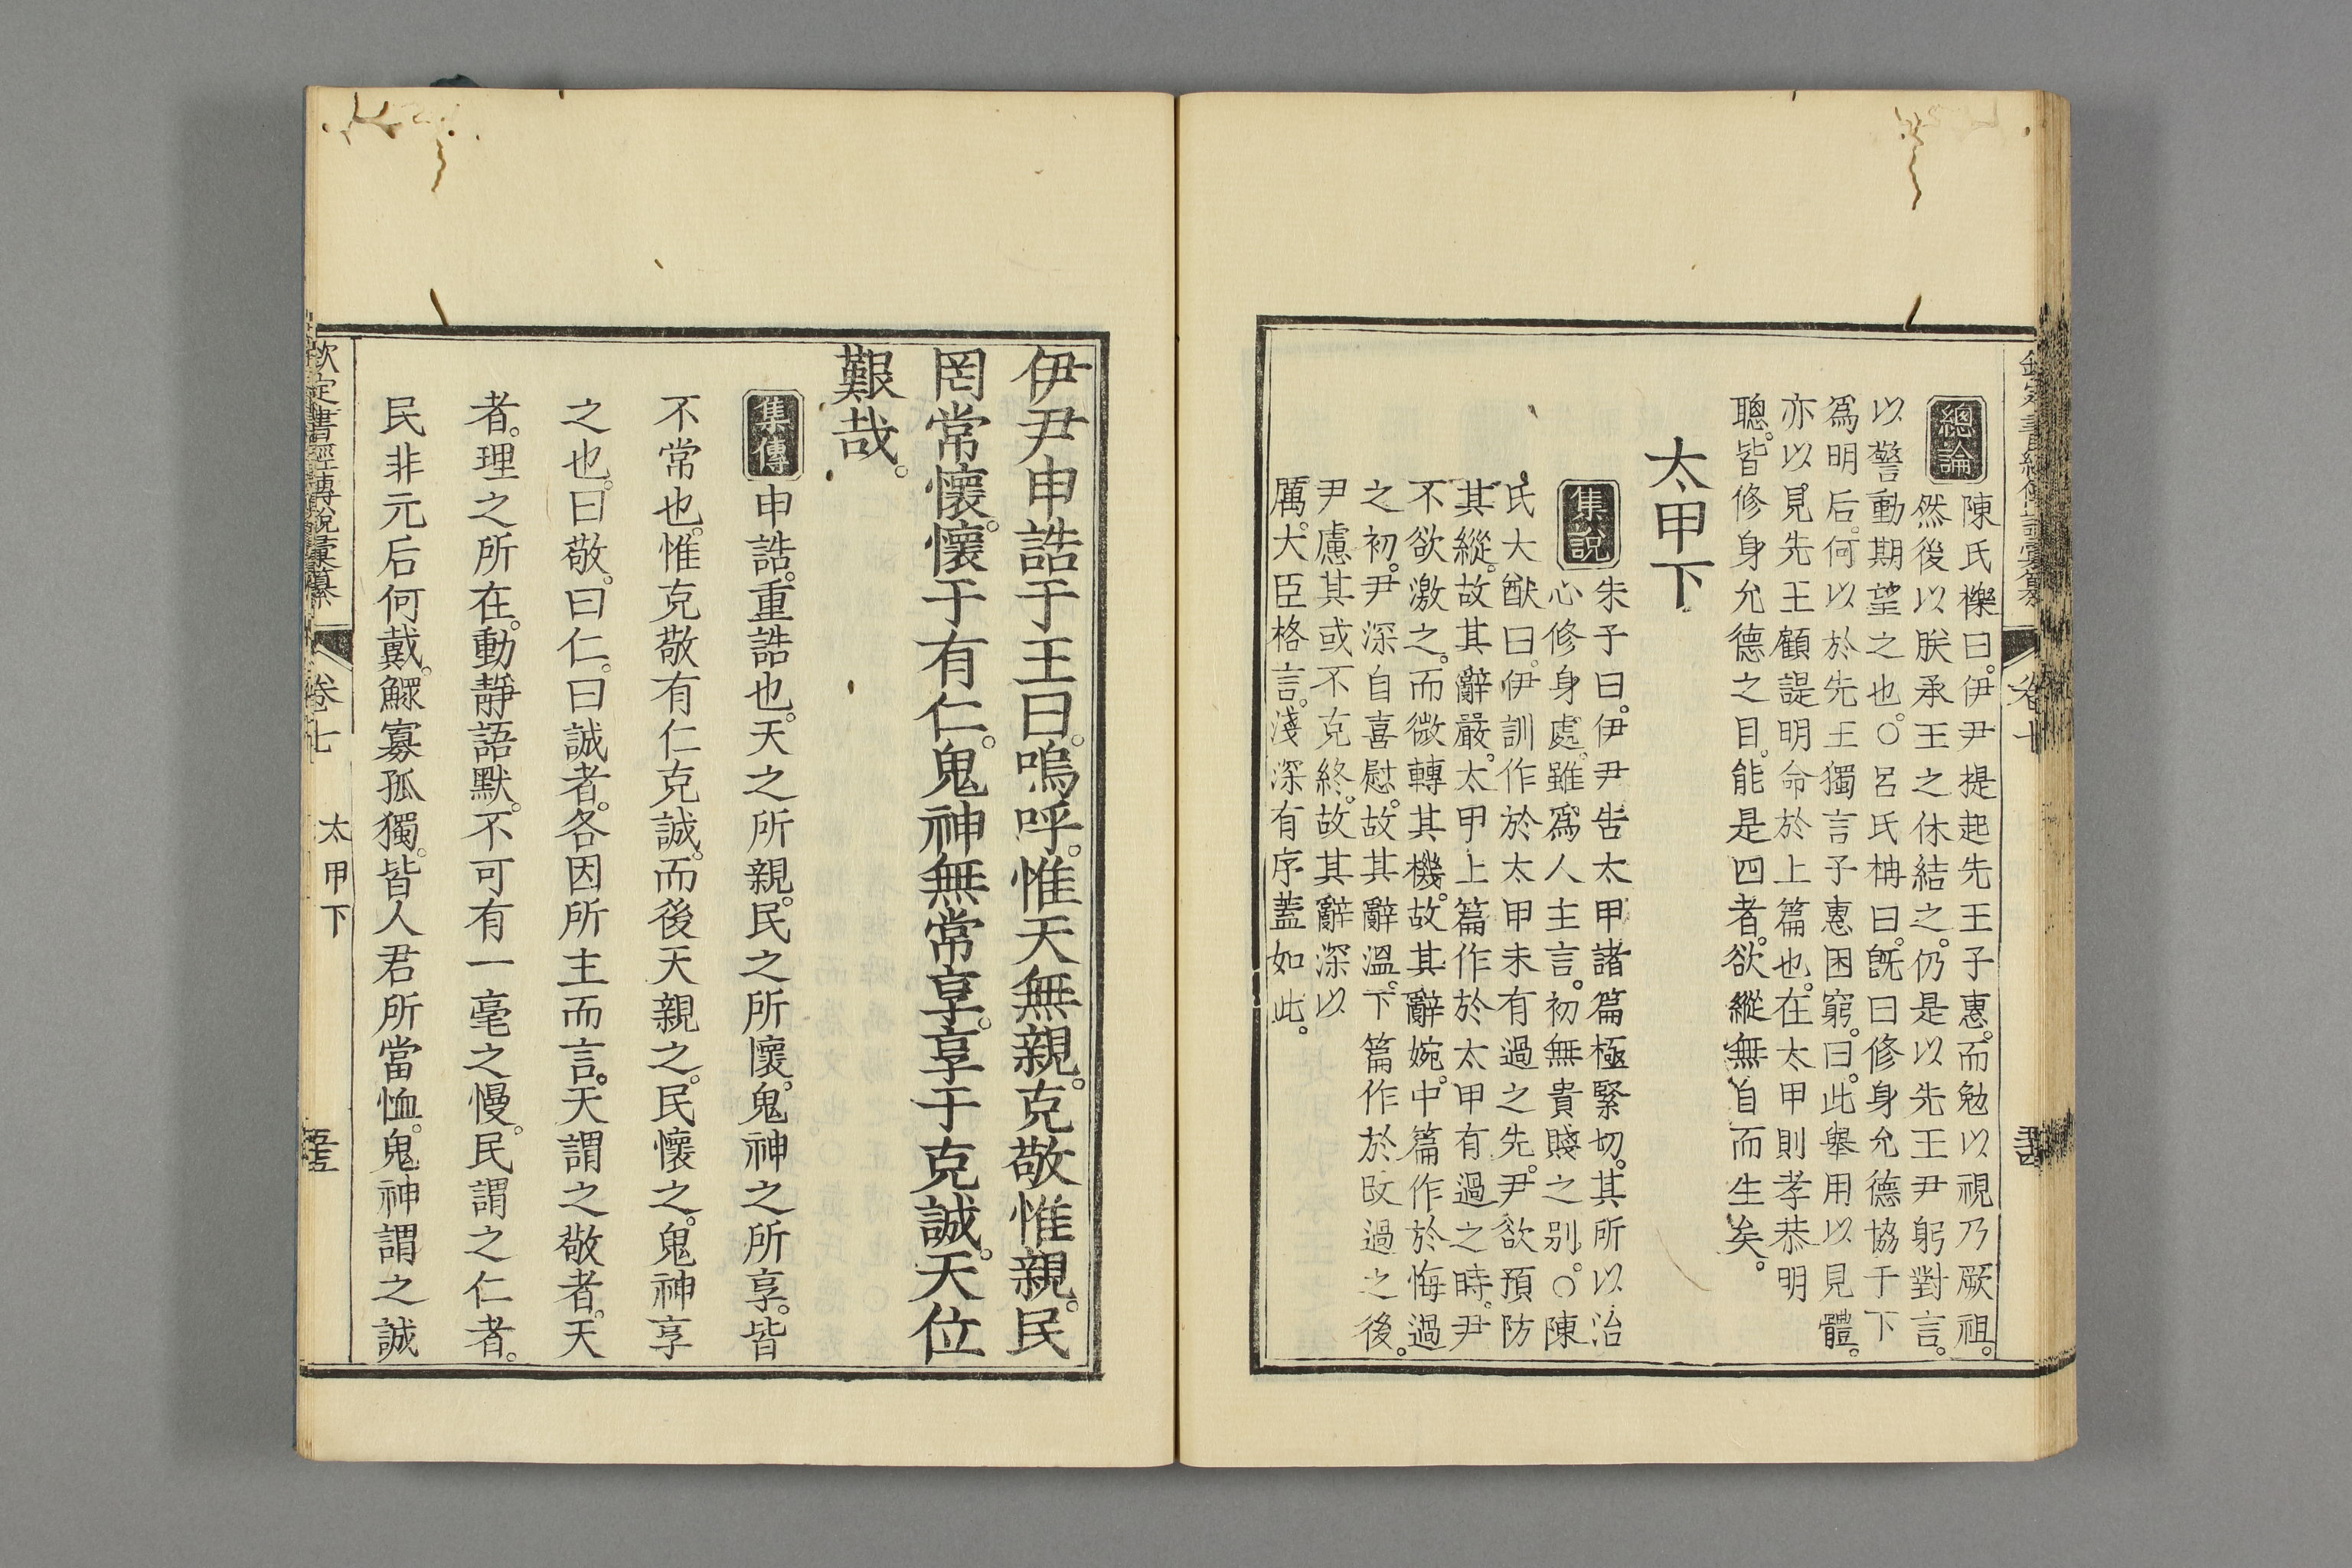 總論 陳氏櫟曰。伊尹提起先王子惠。而勉以視乃厥祖。
然後以朕承王之休結之。仍是以先王尹躬對言。
以警動期望之也。○呂氏柟曰。旣曰修身允德協于下
爲明后。何以於先王獨言子惠困窮。曰。此舉用以見體。
亦以見先王顧諟明命於上篇也。在太甲則孝恭明
聰。皆修身允德之目。能是四者。欲縱無自而生矣。
太甲下
集說 朱子曰。伊尹告太甲諸篇極緊切。其所以治
心修身處。雖爲人主言。初無貴賤之別。○陳
氏大猷曰。伊訓作於太甲未有過之先。尹欲預防
其縱。故其辭嚴。太甲上篇作於太甲有過之時。尹
不欲激之。而微轉其機。故其辭婉。中篇作於悔過
之初。尹深自喜慰。故其辭溫。下篇作於改過之後。
尹慮其或不克終。故其辭深以
厲。大臣格言。淺深有序蓋如此。
伊尹申誥于王曰。嗚呼。惟天無親。克敬惟親。民
罔常懷。懷于有仁。鬼神無常享。享于克誠。天位
艱哉。
集傳 申誥。重誥也。天之所親。民之所懷。鬼神之所享。皆
不常也。惟克敬有仁克誠。而後天親之。民懷之。鬼神享
之也。曰敬。曰仁。曰誠者。各因所主而言。天謂之敬者。天
者。理之所在。動靜語默。不可有一毫之慢。民謂之仁者。
民非元后何戴。鰥寡孤獨。皆人君所當恤。鬼神謂之誠
欽定書經傳說彙纂 卷七 太甲下